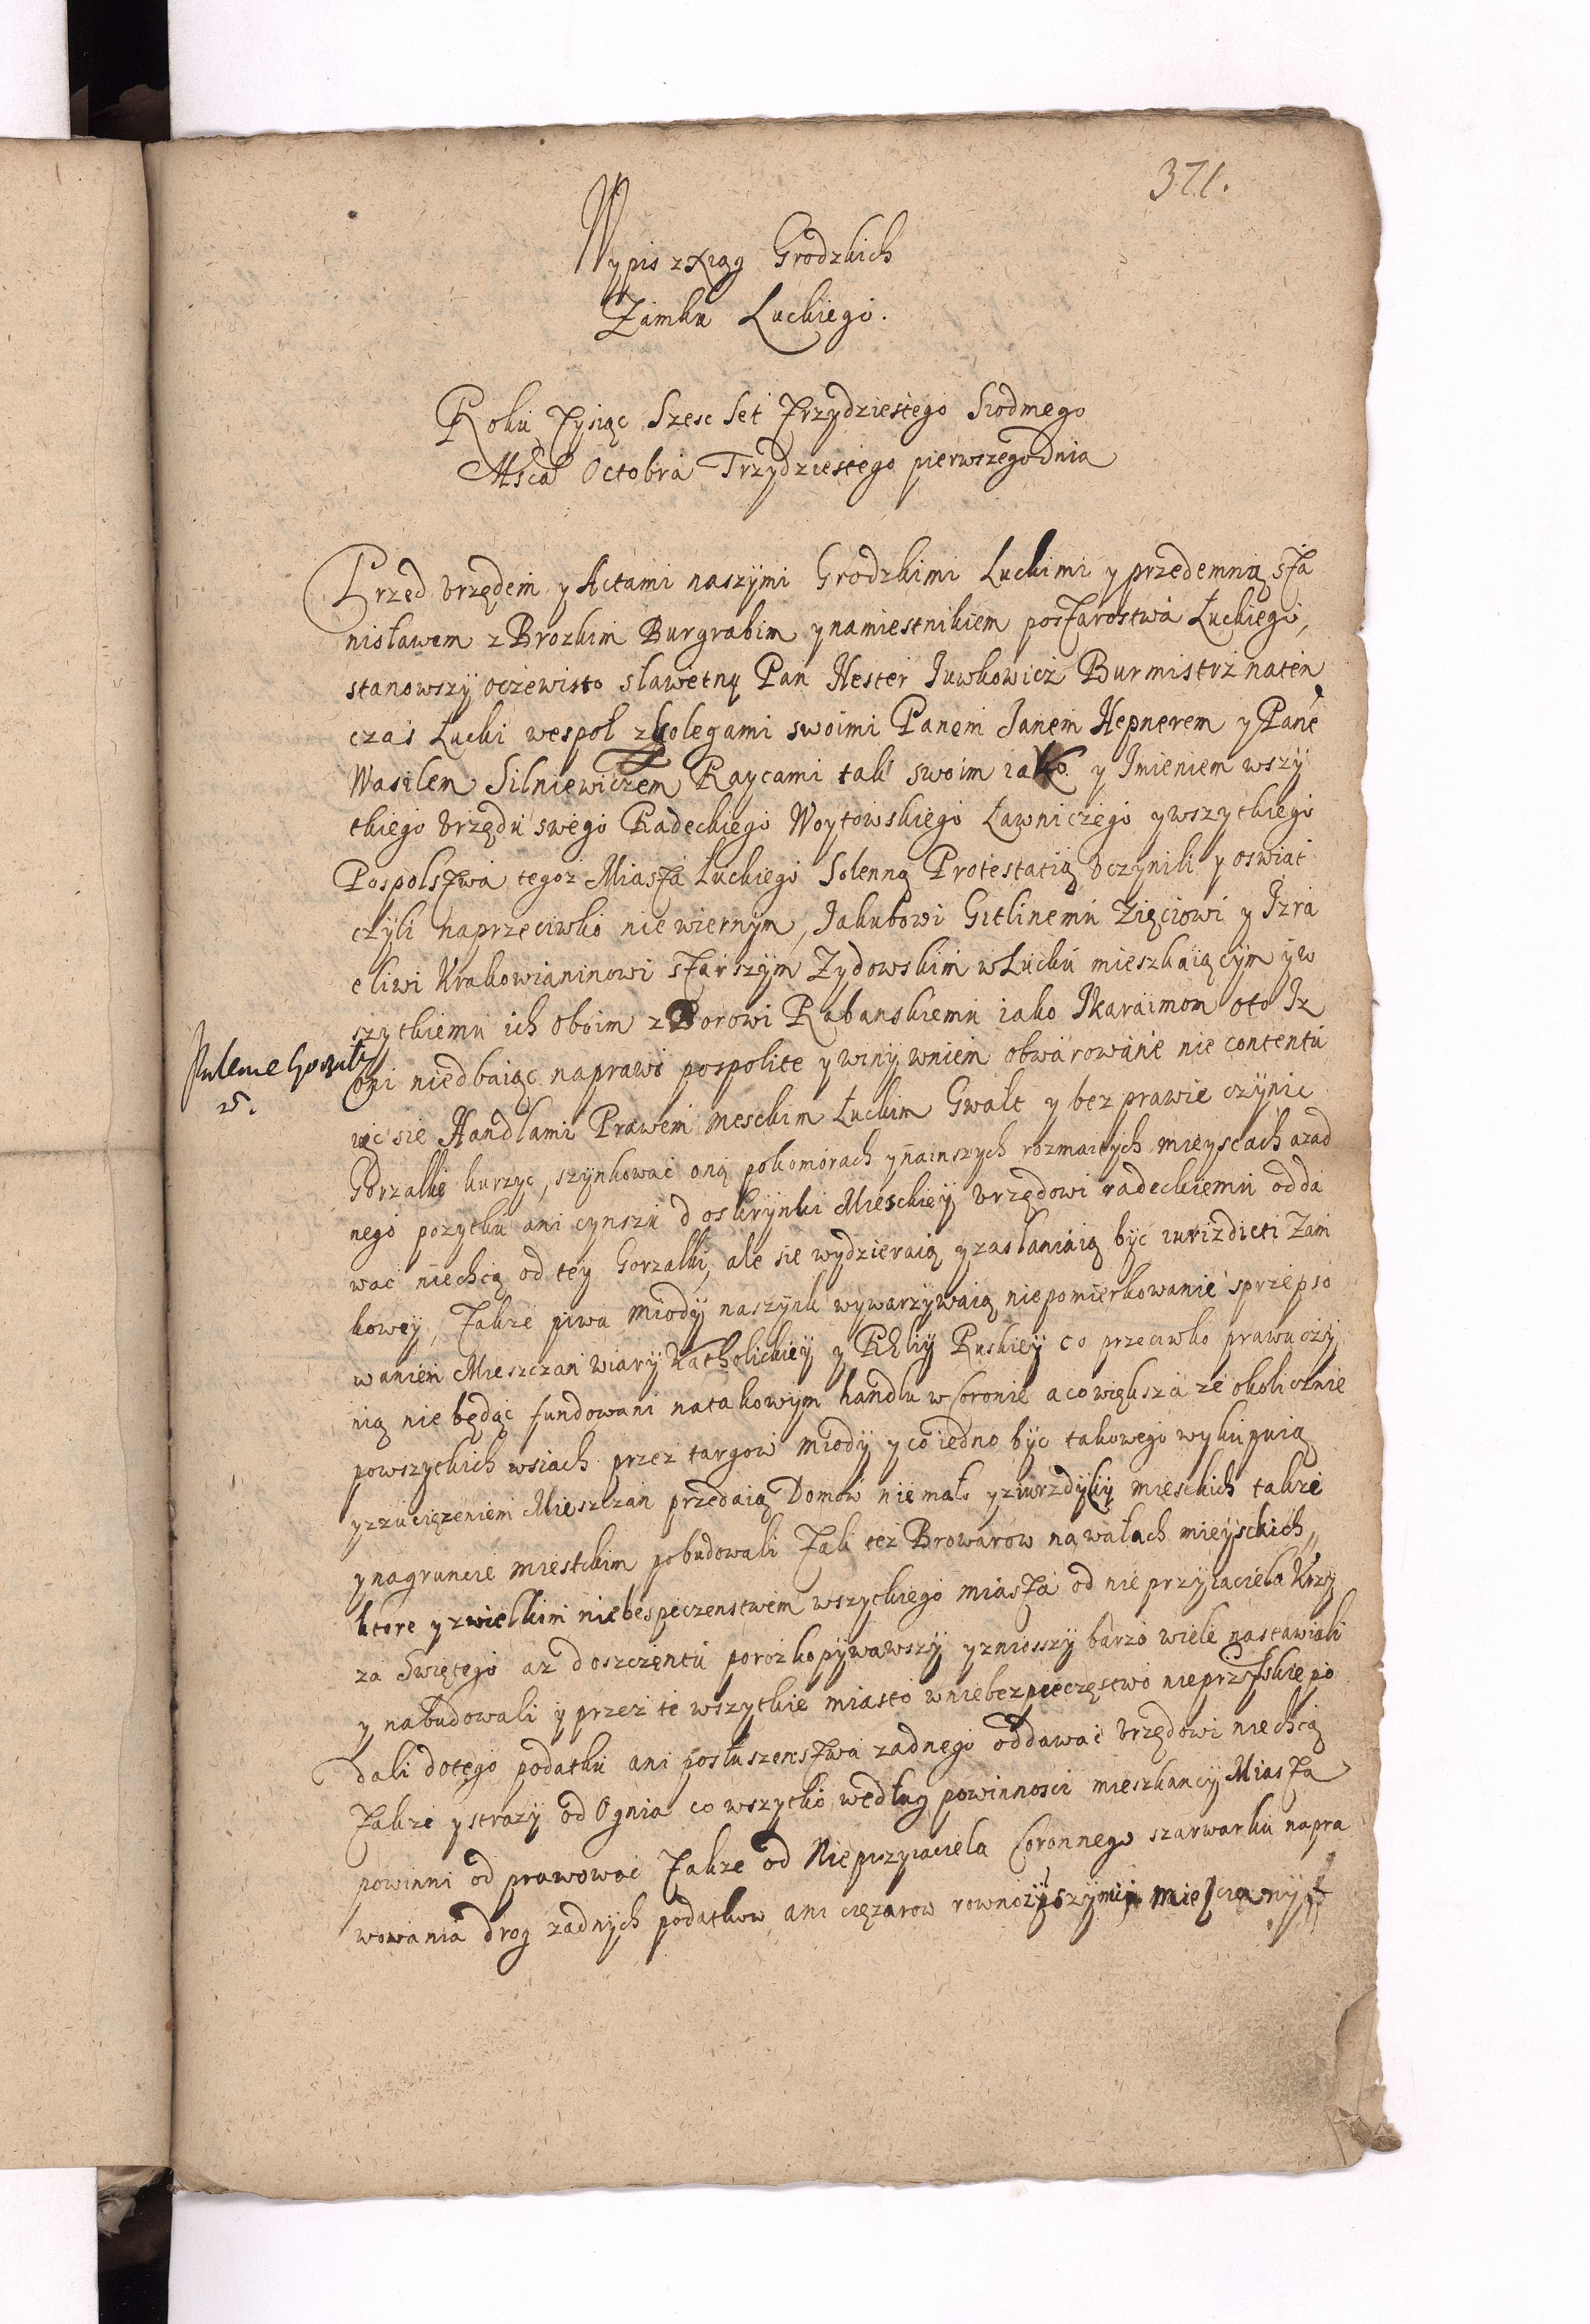 371.
Wypis z Xiąg Grodzkich
Zamku Luckiego.
Roku Tysiąc Szesc Set Trzydziestego Siodmego
Msca Octobra Trzydziestego pierwszego Dnia
Przed Vrzędem y Actami naszymi Grodzkimi Luckimi y przedemną Sta
nisławem z Brozkim Burgrabim y namiestnikiem postarostwa Łuckiego,
stanowszy oczewisto sławetny Pan Hester Iuwkowicz Burmistrz naten
czas Łucki wespoł z kolegami swoimi Panem Janem Hepnerem y Pane
Wasilem Silniewiczem Raycami tak swoim iako y Imieniem wszy
tkiego Vrzędu swego Radeckiego Woytowskiego Ławniczego y wszytkiego
Pospolstwa tegoz Miasta Łuckiego Solenną Protestatią Vczynili y oswiat
czyli naprzeciwko niewiernym, Jakubowi Gitlinemu Zięciowi y Izra
eliwi Krakowianinowi starszym Zydowskim w Lucku mieszkaiącym y w
szytkiemu ich oboim zBorowi Rabanskiemu iako Ikaraimom oto Iz
oni niedbaiąc na prawo pospolite y winy wniem obwarowane nie contentu
iąc sie Handlami Prawem Mesckim Łuckim Gwałt y bezprawie czynic
Gorzałkę kurzyc, szynkowac oną po komorach y na inszych rozmaitych mieyscach a zad
nego pozytku ani cynszu do skrynki Miesckiey Vrzędowi radeckiemu odda
wac niechcą od tey Gorzałki, ale sie wydzieraią y zasłaniaią byc iurizdicti Zam
kowey, Takze piwa miody na szynk wywarzywaią niepomierkowanie sprzepso
waniem Mieszczan wiary Katholickiey y Rliy Ruskiey co przeciwko prawu czy
nią nie będąc fundowani natakowym handlu w Coronie a co większa ze okolicznie
po wszytkich wsiach przez targow miody y co iedno byc takowego wykupuią
y z zuciązeniem Mieszczan przedaią Domow niemało y z iurzdykij miesckich takze
y na gruncie miestckim pobudowali Tak tez Browarow na wałach mieysckich,
ktore y z wielkim niebespeczenstwem wszytkiego miasta od nieprzyiaciela Krzy
za Swiętego az doszczentu porozkopywawszy y zniosszy barzo wiele nastawiali
y nabudowali y przez te wszytkie miasto w niebezpieczęstwo nieprzskie po
dali do tego podatku ani posłuszenstwa zadnego oddawac Vrzędowi niechcą
Takze y strazy od Ognia co wszytko według powinnosci mieszkancy Miasta
powinni odprawowac Takze od Nieprzyiaciela Coronnego szarwarku napra
wowania drog zadnych podatkow ani cięzarow rowno